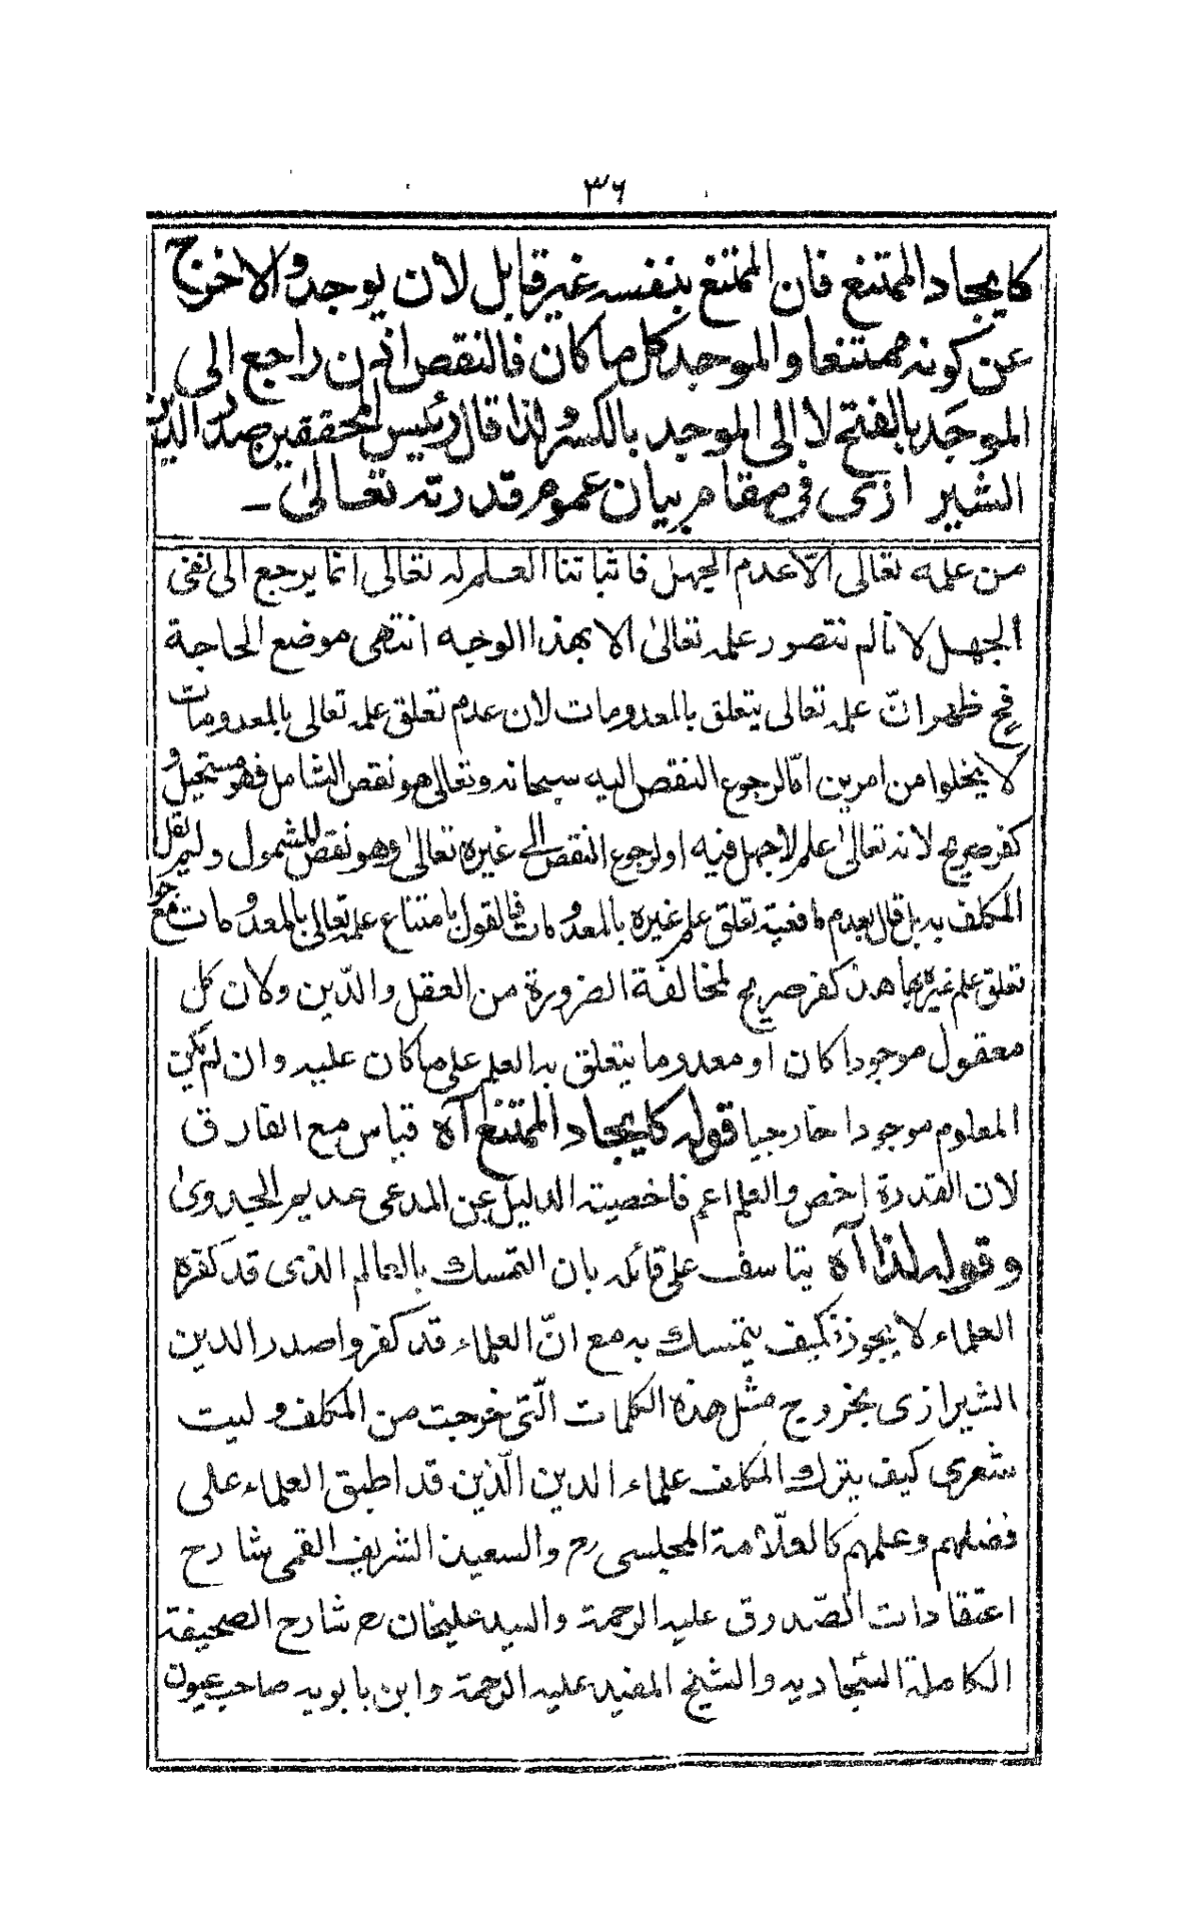 ٣٦
كايجاد الممتنع فان الممتنع بنفسه غير قابل لان يوجد والا خرج
عن كونه ممتنعا والموجد كل ما كان فالنقص اذن راجع الى
الموجَد بالفتح لا الى الموجد بالكسر ولذا قال رئيس المحققين صدر الدين
الشيرازى فى مقام بيان عموم قدرته تعالىٰ ـ
من علمه تعالى الّا عدم الجهل فاثباتنا العلم له تعالى انما يرجع الى نفى
الجهل لانا لم نتصور علمه تعالىٰ الا بهذا الوجه انتهى موضع الحاجة
فح ظهر انّ علمه تعالى يتعلق بالمعدومات لان عدم تعلق علمه تعالى بالمعدومات
لا يخلوا من امرين امّا لرجوع النقص اليه سبحانه وتعالى هو نقص الشامل فهو مستحيل و
كفر صريح لانه تعالىٰ علم لا جهل فيه او لرجوع النقص الى غيره تعالىٰ وهو نقص المشمول ولم يقل
المكلف به بل قال بعدم تعلق علم غيره بالمعدومات فالقول بامتناع علمه تعالى بالمعدومات مع جواز
تعلق علم غيره بها هذا كفر صريح لمخالفة الضرورة من العقل والدّين ولان كل
معقول موجودا كان او معدوما يتعلق به العلم على ما كان عليه وان لم يكن
المعلوم موجودا خارجيا قوله كايجاد الممتنع آه قياس مع الفارق
لان القدرة اخص والعلم اعم فاخصيته الدليل عن المدعى عديم الجدوىٰ
وقوله لذا آه يتاسف على قائله بان التمسك بالعالم الذى قد كفره
العلماء لا يجوز فكيف يتمسك به مع انّ العلماء قد كفروا صدر الدين
الشيرازى بخروج مثل هذه الكلمات الّتى خرجت من المكلف وليت
شعرى كيف يترك المكلف علماء الدين الّذين قد اطبق العلماء على
فضلهم وعلمهم كالعلّامة المجلسى رح والسعيد الشريف القمى شارح
اعتقادات الصّدوق عليه الرحمة والسيد عليخان رح شارح الصحيفة
الكاملة السّجاديه والشيخ المفيد عليه الرحمة وابن بابويه صاحب عيون